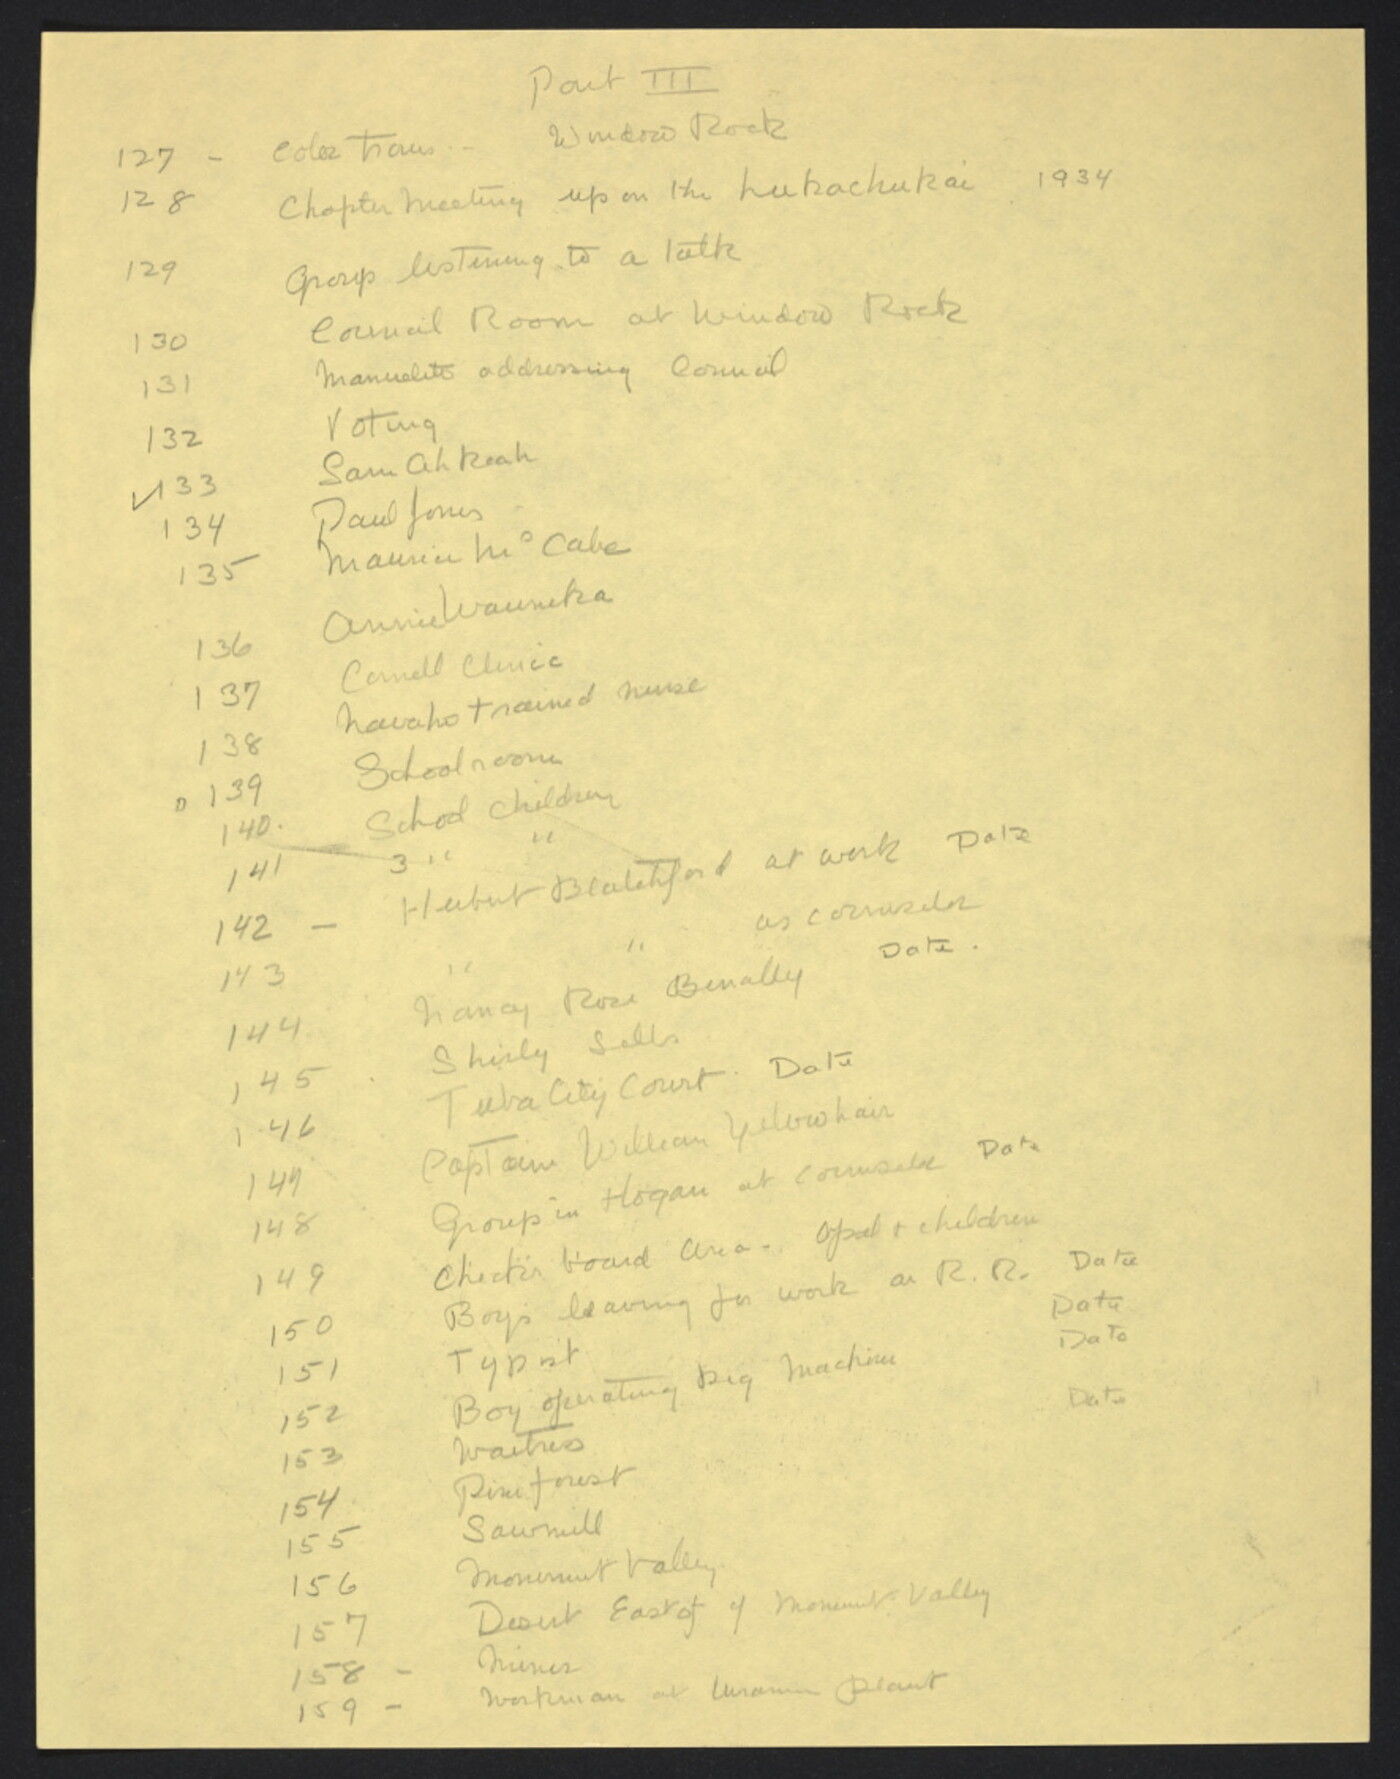 Part III
127 - Color Trans. - Window Rock
128 Chapter Meeting up on the Lukachukai 1934
129 Group listening to a talk
130 Council Room at Window Rock
131 Manuelito addressing Council
132 Voting
✓133 Sam Ahkeah
134 Paul Jones
135 Maurice McCabe
136 Annie Wauneka
137 Cornell Clinic
138 Navaho trained nurse
139 Schoolroom
140. School children
141 3 " "
142 - Herbert Blatchford at work Date
143 " " as counselor
144 Nancy Rose Benally Date.
145 Shirly Sells
146 Tuba City Court. Date
147 Captain William Yellowhair
148 Group in Hogan at counselor Date
149 Checker board area - Opal + children
150 Boys leaving for work on R. R. Date
151 Typist Date
152 Boy operating Machine Date
153 Waitress Date
154 Pine forest
155 Sawmill
156 Monument Valley.
157 Desert East of of Monument Valley
158 - Miner
159 - Workman at Uranium plant